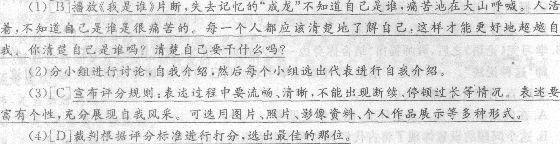 (1)[B]播放《我是谁》片断,失去记忆的“成龙”不知道自己是谁,痛苦地在大山呼喊。人活
着,不知道自己是谁是很痛苦的。每一个人都应该清楚地了解自己,这样才能更好地超越自
我。你清楚自己是谁吗?清楚自己要干什么吗?
(2)分小组进行讨论,自我介绍,然后每个小组选出代表进行自我介绍。
(3)[C]宣布评分规则:表述过程中要流畅、清晰,不能出现断续、停顿过长等情况。表述要
富有个性,充分展现自我风采。可选用图片、照片、影像资料、个人作品展示等多种形式。
(4)[D]裁判根据评分标准进行打分,选出最佳的那位。